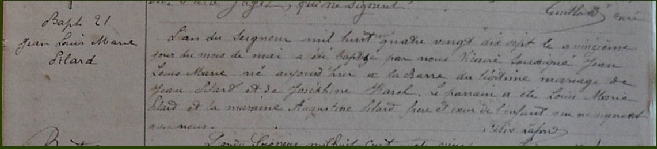 qui ne signent
curé
Bapt. 21
Jean Louis Marie
Pélard
L'an du Seigneur mil huit quatre vingt dix sept le quinzième
jour du mois de mai a été baptisé par nous Vicaire soussigné Jean
Louis Marie né aujourd'hier à la Barre du légitime mariage de
Jean Pélard et de Joséphine le parrain a été Louis Marie
Pélard et la marraine Augustine Pélard frère et sœur de l'enfant qui ne signent
que nous.
L'an du Seigneur mil huit cent et